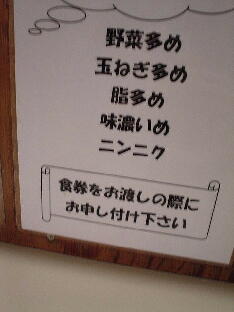 野菜多め
玉ねぎ多め
脂多め
味濃いめ
ニンニク
食券をお渡しの際に
お申し付け下さい